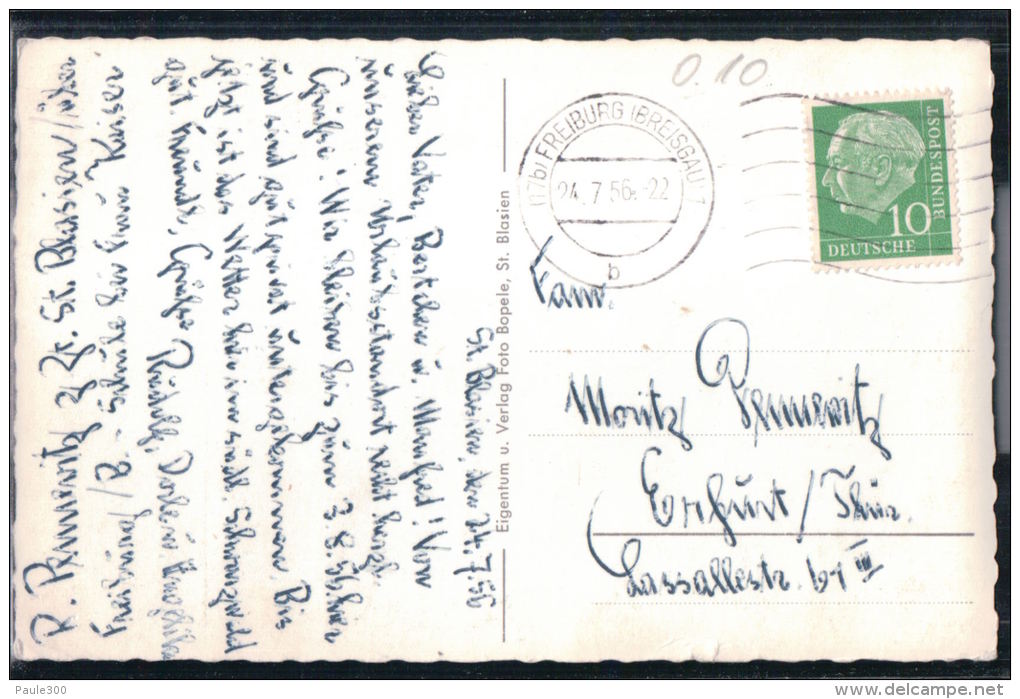 St. Blasien, den 24.7.56
Lieber Vater, Bertchen u. Manfred! Von
unserem Urlaubsstandort recht herzl.
Grüße! Wir bleiben bis zum 3.8.56 hier
und sind gut privat untergekommen. Bis
jetzt ist das Wetter hier im südl. Schwarzwald
gut. Grüße
R. Pennewitz z. Zt. St. Blasien / über
Freiburg/B. - Schule bei Frau Kaiser
Eigentum u. Verlag Foto Bopele, St. Blasien
0.10
(17b) FREIBURG (BREISGAU) 1
24.7.56.-22
b
BUNDESPOST
10
DEUTSCHE
Fam.
Moritz Pennewitz
Erfurt / Thür.
Lassallestr. 61 III
Paule300
www.delcampe.net